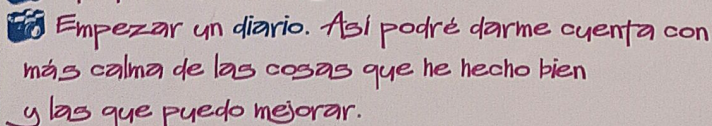 Empezar un diario. Así podré darme cuenta con
más calma de las cosas que he hecho bien
y las que puedo mejorar.